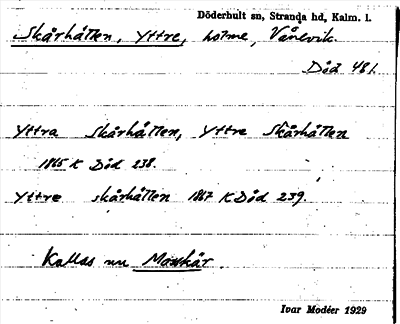 Döderhult sn, Stranda hd, Kalm. l.
Skårhåtten, Yttre, holme, Vånevik.
Död 481.
Yttra Skårhåtten, Yttre Skårhåtten
1865 K Död 238.
Yttre skårhåtten 1867 K Död 239.
Kallas nu Moskär.
Ivar Modéer 1929